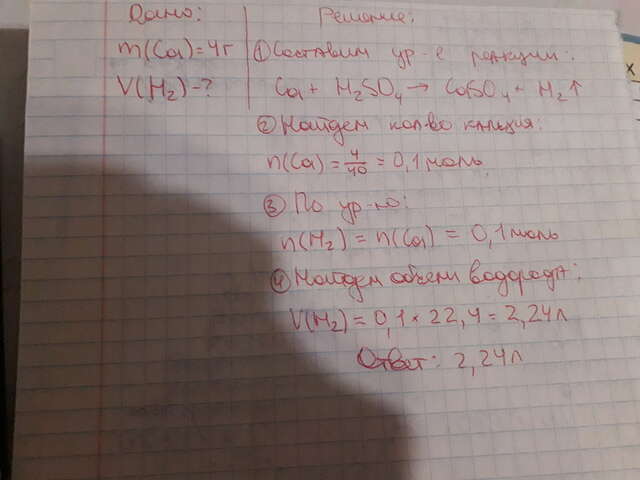 Дано:
Решение:
m(Ca)=4г
① Составим ур-е реакции:
V(H₂)-?
Ca + H₂SO₄ → CaSO₄ + H₂↑
② Найдём кол-во кальция:
n(Ca) = 4/40 = 0,1 моль
③ По ур-ю:
n(H₂) = n(Ca) = 0,1 моль
④ Найдем объем водорода:
V(H₂) = 0,1 × 22,4 = 2,24л
Ответ: 2,24л